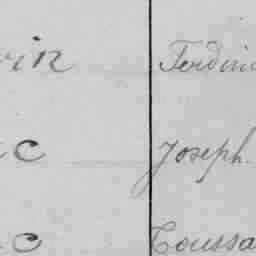 vin Ferdin
c Joseph.
c Toussa